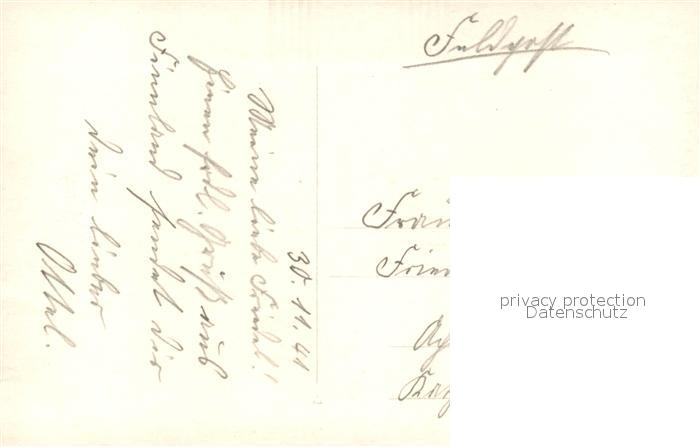 Feldpost
30.11.41
Meine liebe Friedel!
Einen frdl. Gruß aus
Finnland sendet dir
dein lieber
Ottel.
Fräu
Frie
Ap
Ka
privacy protection
Datenschutz